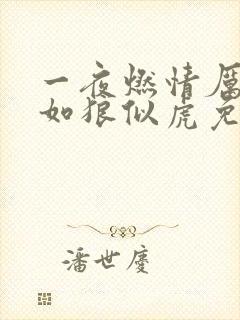 一夜燃情厲
如狼似虎免
潘世慶